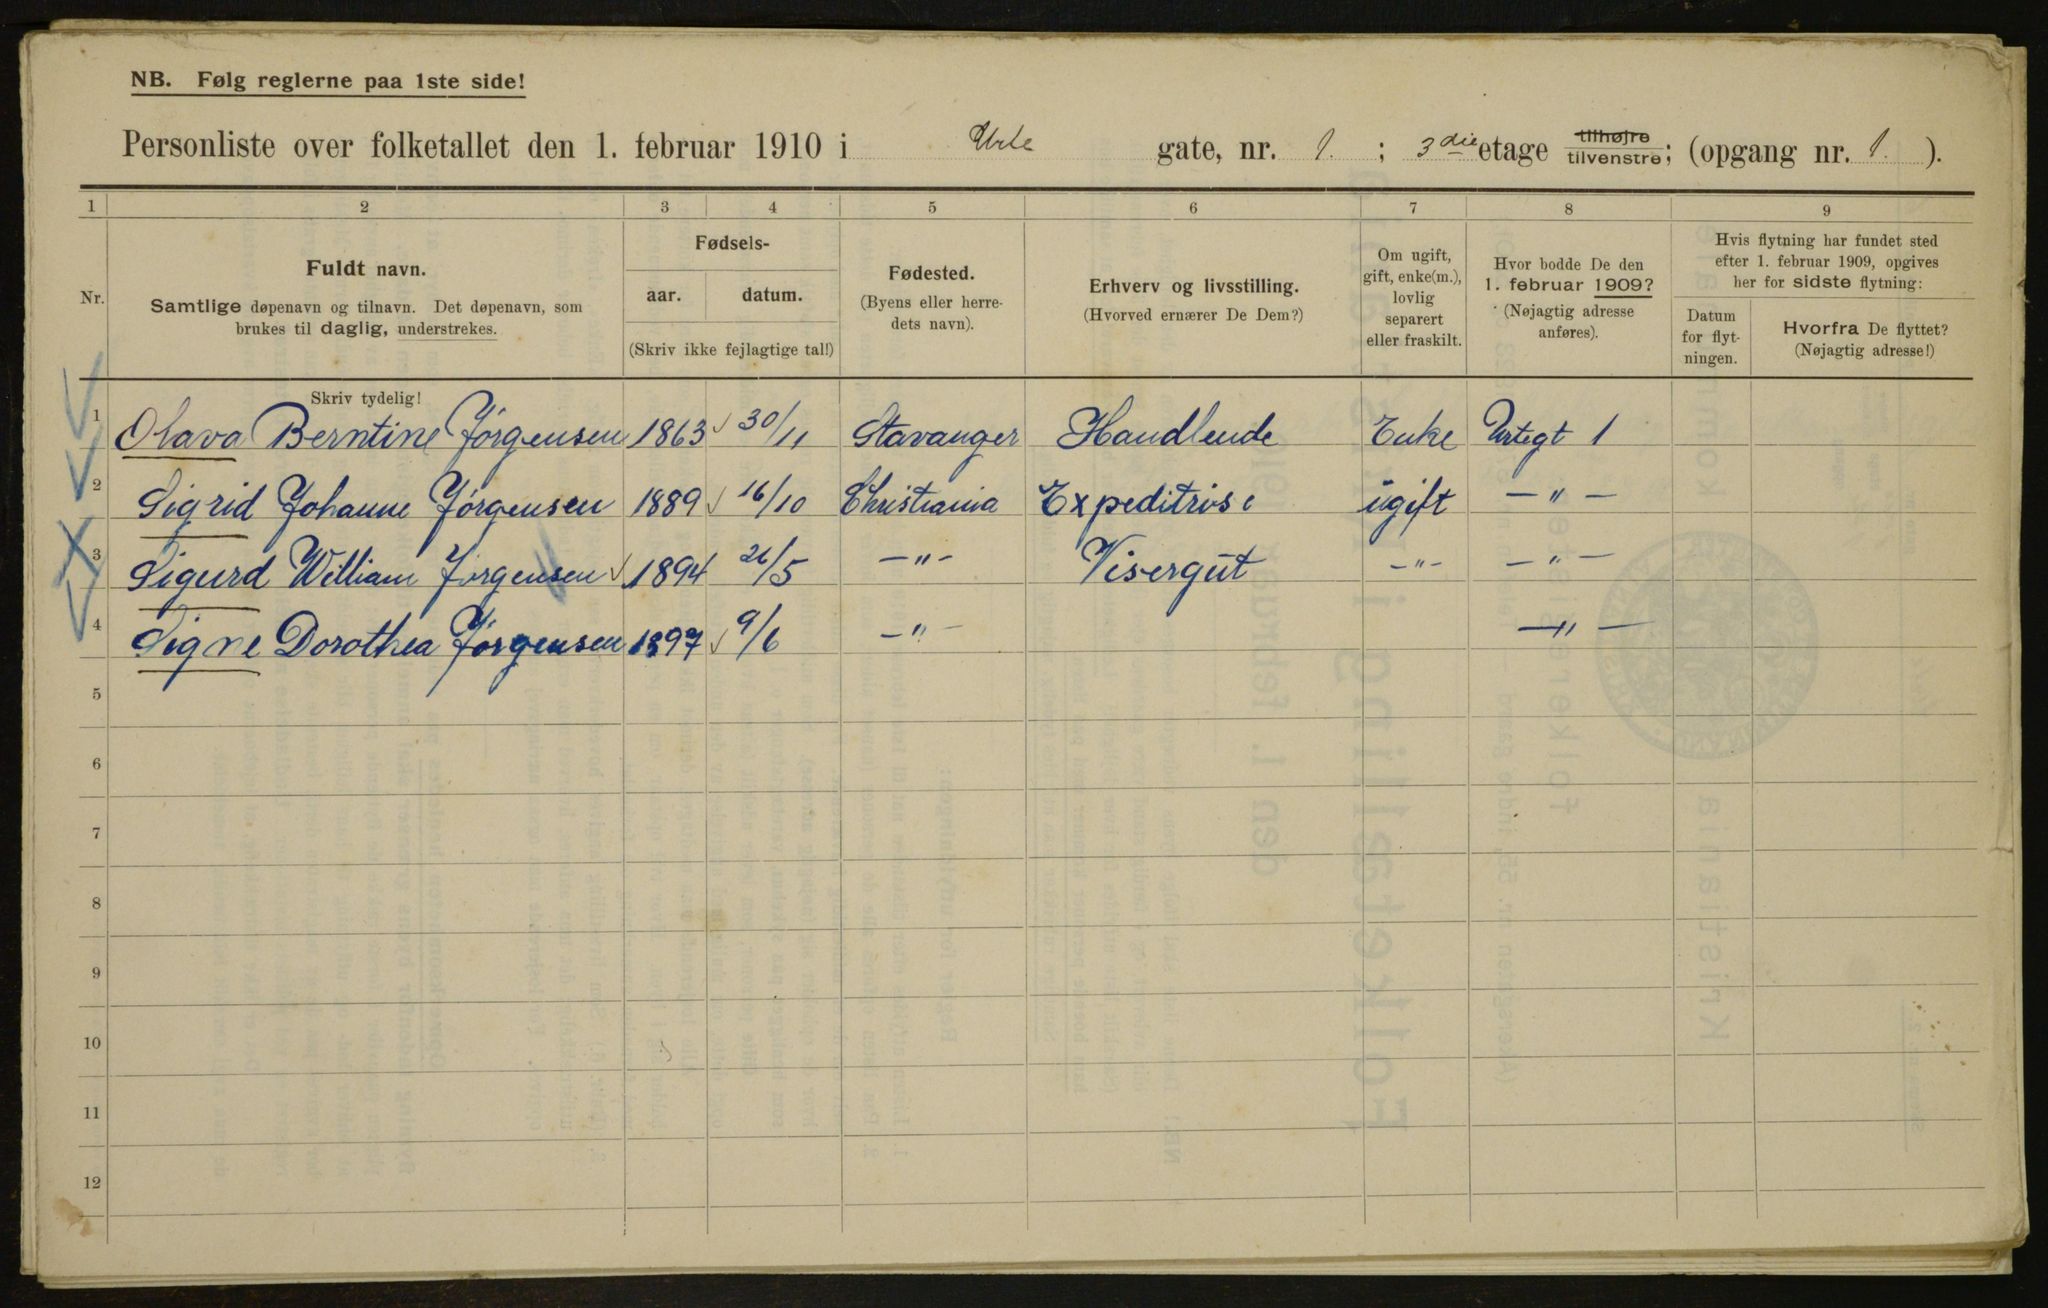 NB. Følg reglerne paa 1ste side!
Personliste over folketallet den 1. februar 1910 i Urte gate, nr. 1. ; 3 die etage tilhøjre tilvenstre; (opgang nr. 1. ).
1 2 3 4 5 6 7 8 9
Nr.
Fuldt navn.
Samtlige døpenavn og tilnavn. Det døpenavn, som
brukes til daglig, understrekes.
Fødsels-
aar. datum.
(Skriv ikke fejlagtige tal!)
Fødested.
(Byens eller herre-
dets navn).
Erhverv og livsstilling.
(Hvorved ernærer De Dem?)
Om ugift,
gift, enke(m.),
lovlig
separert
eller fraskilt.
Hvor bodde De den
1. februar 1909?
(Nøjagtig adresse
anføres).
Hvis flytning har fundet sted
efter 1. februar 1909, opgives
her for sidste flytning:
Datum
for flyt-
ningen.
Hvorfra De flyttet?
(Nøjagtig adresse!)
Skriv tydelig!
1 Olava Berntine Jørgensen 1863 30/11 Stavanger Handlende Enke Urtegt 1
2 Sigrid Johanne Jørgensen 1889 16/10 Christiania Expeditrise ugift —"—
3 Sigurd William Jørgensen 1894 /5 —"— Visergut —"— —"—
4 Signe Dorothea Jørgensen 1897 9/6 —"— —"—
5
6
7
8
9
10
11
12